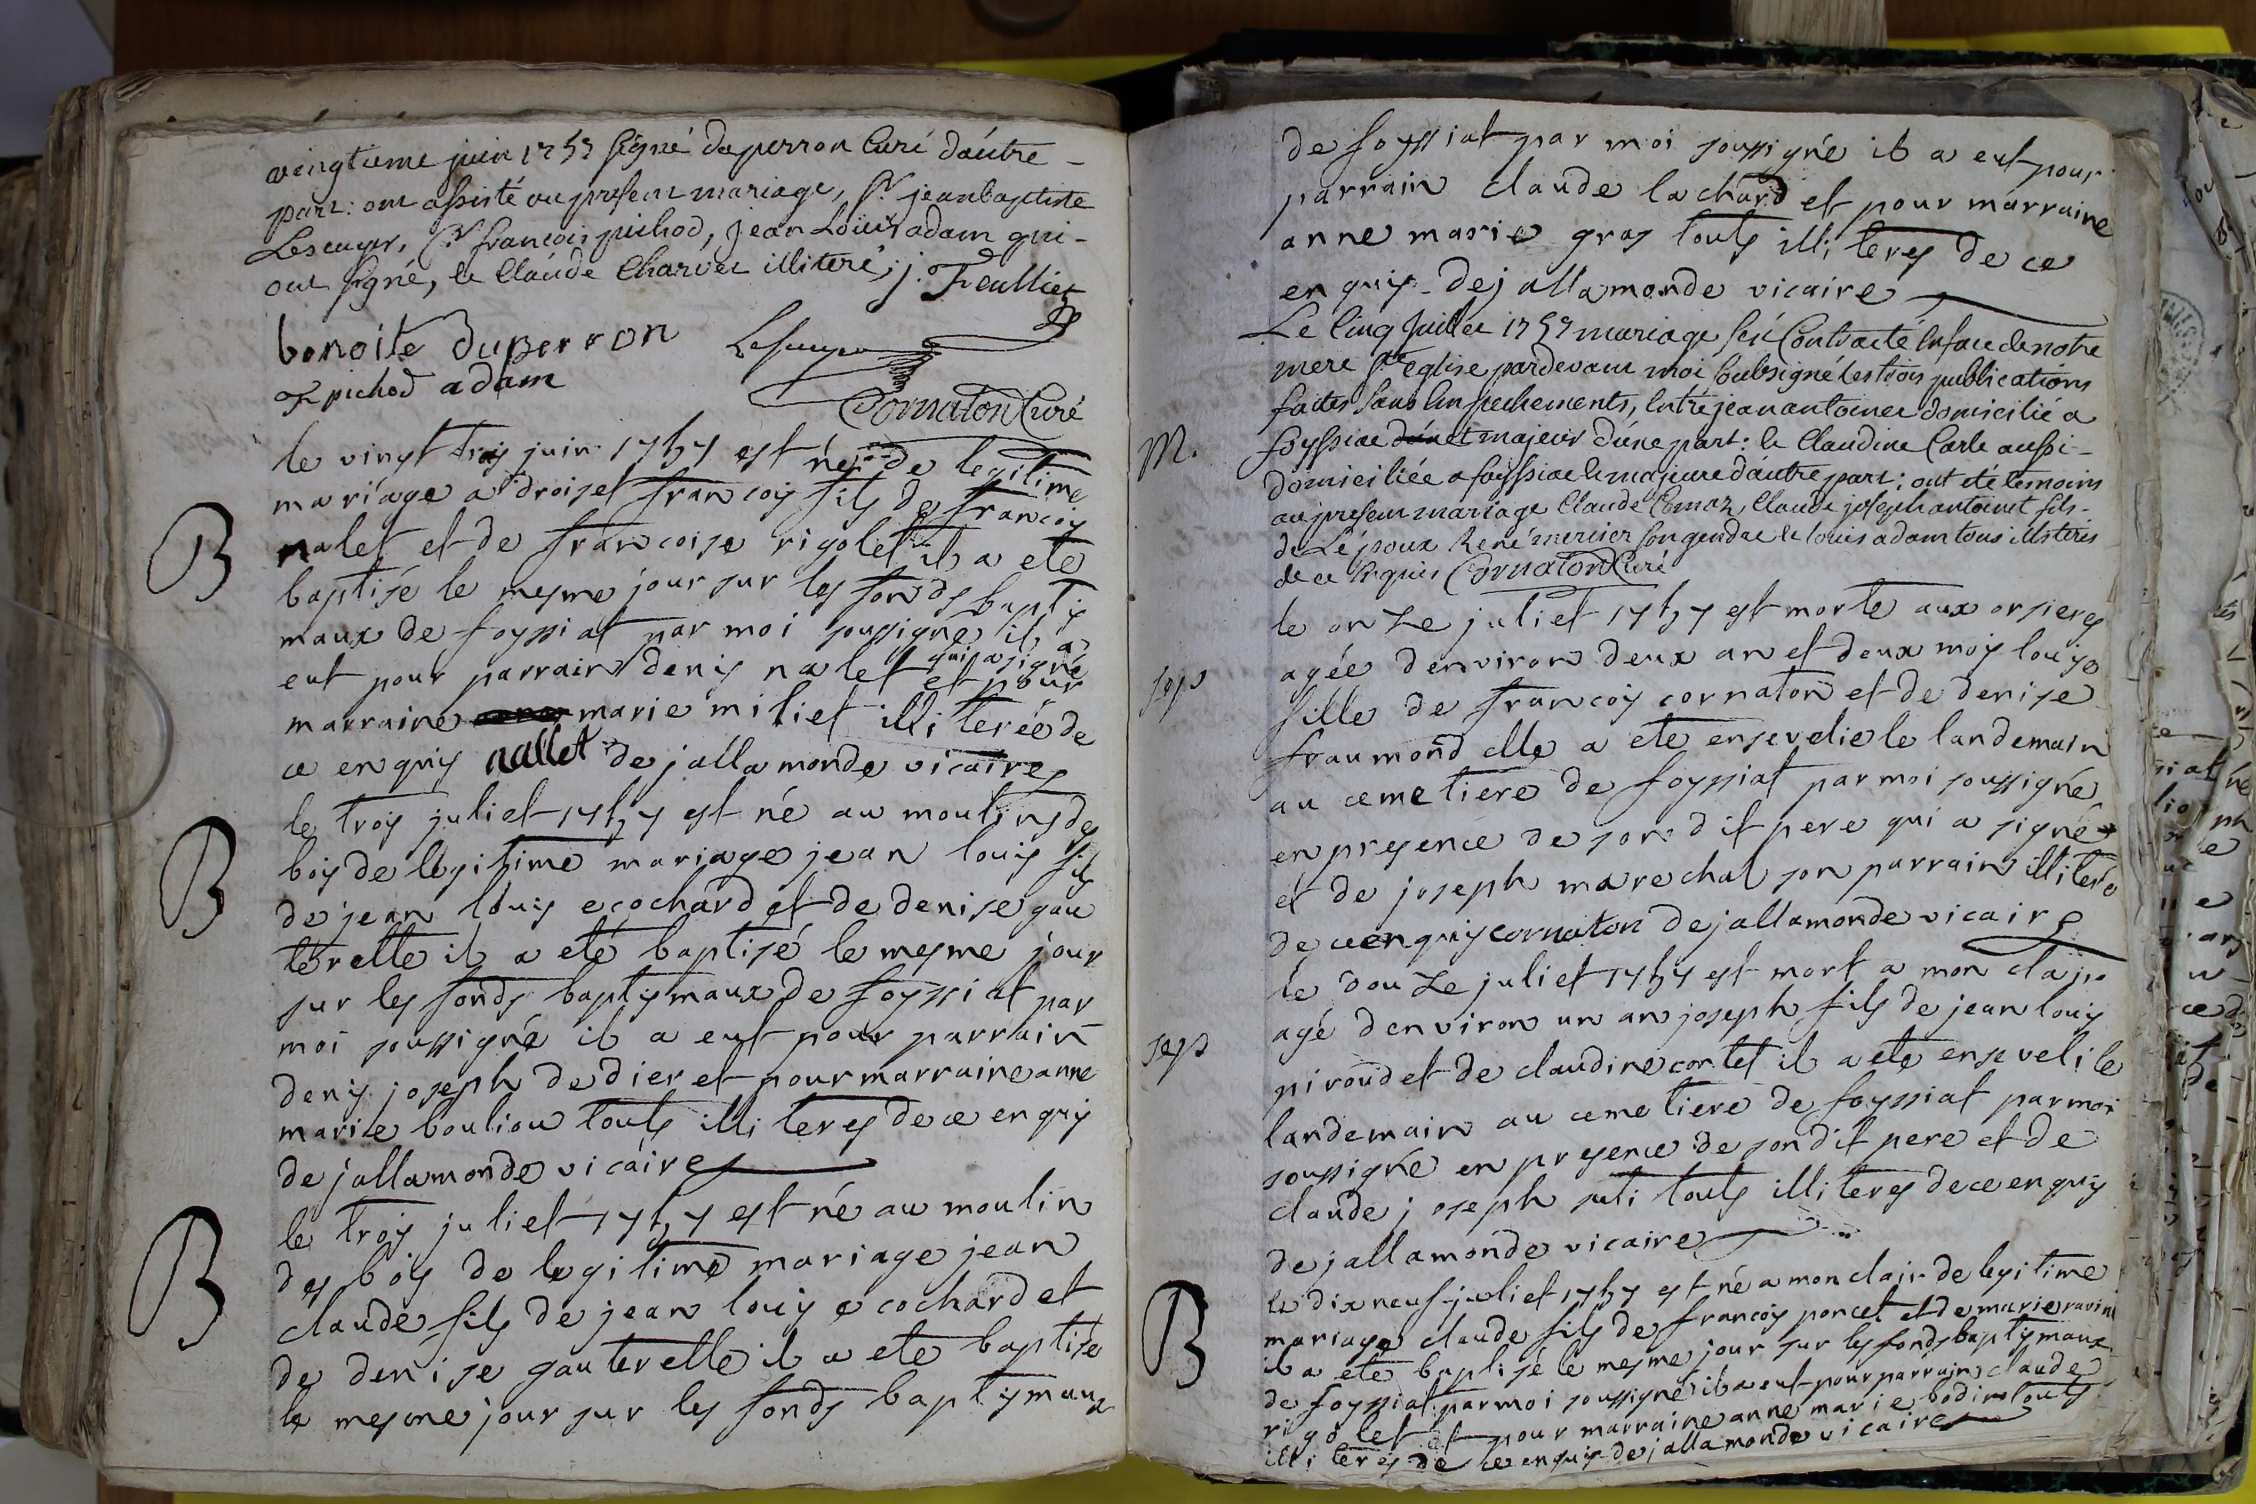 vingtieme juin 1757 signé duperron Curé dáutre
part: ont assisté au present mariage, Sr. jeanbaptiste
Lescuyer, Sr francois pichod, jean Loüis adam qui
ont signé, et Claúde Charvet illiteré; j. Feullier
benoite duperron Lescuyer
F pichod adam
Cornaton Curé
le vingt troy juin 1757 est né de legitime
mariage a droiset francoy fils de francoy
B
nalet et de francoise rigolet il a eté
baptisé le mesme jour sur les fonds baptis
maux de foyssiat par moi soussigné il a
eut pour parrain denis nalet qui a signé et pour
marraine marie miliet illiterée de
ce enquis nallet dejallamonde vicaire
le troy juliet 1757 est né au moulin des
B
bois de legitime mariage jean louis fils
de jean louis ecochard et de denise gau
terette il a eté baptisé le mesme jour
sur les fonds baptismaux de foyssiat par
moi soussigné il a eut pour parrain
denis joseph dedier et pour marraine anne
marie bouliou touts illiteres de ce enquis
dejallamonde vicaire
le troy juliet 1757 est né au moulin
B
des bois de legitime mariage jean
claude fils de jean louis ecochard et
de denise gauterelle il a eté baptisé
le mesme jour sur les fonds baptismaux
de foyssiat par moi soussigné il a eut pour
parrain claude lachard et pour marraine
anne marie gras touts illiteres de ce
enquis dejallamonde vicaire
Le Cinq Juillet 1757 mariage fút Contracté En face de notre
mere Ste eglise pardevant moi Soubsigné les trois publications
faites Sans Empechements, Entre jean antoinet domicilié a
M.
foyssiac et majeur dúne part: et Claudine Carle aussi
domiciliée a foyssiac et majeure dáutre part; ont eté temoins
au present mariage Claude Comaz, Claude joseph antoinet fils
de Lépoux René mercier Son gendre et loüis adam tous illiterés
de ce Enquis Cornaton Curé
le onze juliet 1757 est morte aux orsieres
sep
agée denviron deux an et deux mois louise
fille de francoy cornaton et de denise
fraumond elle a eté ensevelie le landemain
au cemetiere de foyssiat par moi soussigné
en presence de son dit pere qui a signé
et de joseph marechal son parrain illiteré
de ce enquis cornaton dejallamonde vicaire
le douze juliet 1757 est mort a mon clair
sep
agé denviron un an joseph fils de jean louis
piroud et de claudine cortet il a eté enseveli le
landemain au cemetiere de foyssiat par moi
soussigné en presence de sondit pere et de
claude joseph juli touts illiteres de ce enquis
dejallamonde vicaire
le dix neuf juliet 1757 est né a mon clair de legitime
B
mariage claude fils de francoy poncet et de marie ravi
il a eté baptisé le mesme jour sur les fonds baptismaux
de foyssiat par moi soussigné il a eut pour parrain claude
rigolet et pour marraine anne marie bodin touts
illiteres de ce enquis dejallamonde vicaire